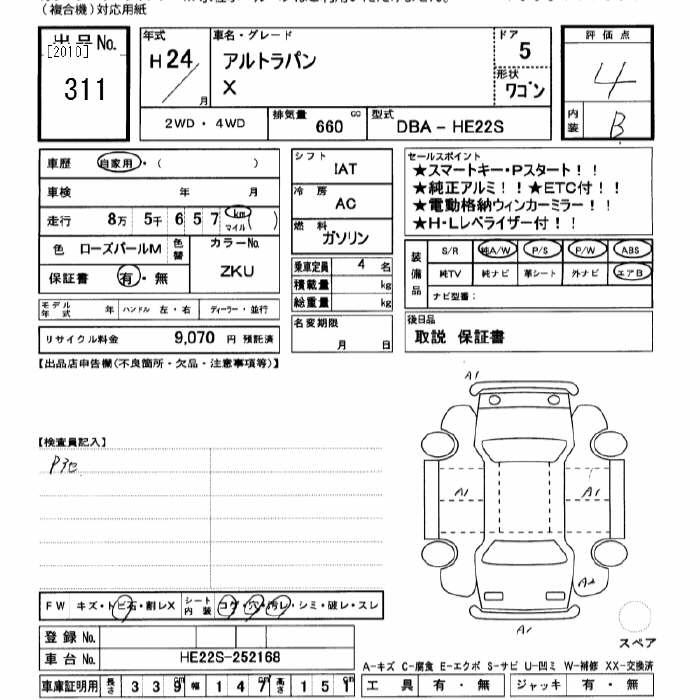 （複合機）対応用紙
出品No.
[2010]
311
年式
H24
月
車名・グレード
アルトラパン
X
ドア
5
形状
ワゴン
評価点
4
内装
B
2WD・4WD
排気量
660
cc
型式
DBA－HE22S
車歴
自家用・（　　）
車検
年　月
走行
8万 5千 6 5 7 km
マイル
色
ローズパールM
色替
カラーNo.
ZKU
保証書
有・無
シフト
IAT
冷房
AC
燃料
ガソリン
乗車定員
4 名
積載量
kg
総重量
kg
セールスポイント
★スマートキー・Pスタート！！
★純正アルミ！！★ETC付！！
★電動格納ウィンカーミラー！！
★H・Lレベライザー付！！
装備品
S/R 純A/W P/S P/W ABS
純TV 純ナビ 革シート 外ナビ エアB
ナビ型番：
モデル年式
年
ハンドル 左・右
ディーラー・並行
リサイクル料金 9,070 円 預託済
名変期限
月 日
後日品
取説 保証書
【出品店申告欄（不良箇所・欠品・注意事項等）】
【検査員記入】
A1
A1
A1
A2
A1
スペア
FW キズ・トビ石・割レX
シート内装
コゲ・穴・汚レ・シミ・破レ・スレ
登録No.
車台No. HE22S-252168
車庫証明用
長さ 3 3 9 cm
幅 1 4 7 cm
高さ 1 5 1 cm
A-キズ C-腐食 E-エクボ S-サビ U-凹ミ W-補修 XX-交換済
工具 有・無
ジャッキ 有・無